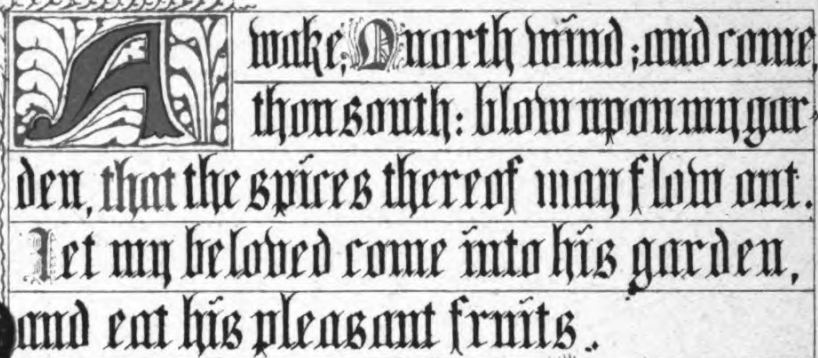 Awake, O north wind; and come,
thou south: blow upon my gar-
den, that the spices thereof may flow out.
Let my beloved come into his garden,
and eat his pleasant fruits.